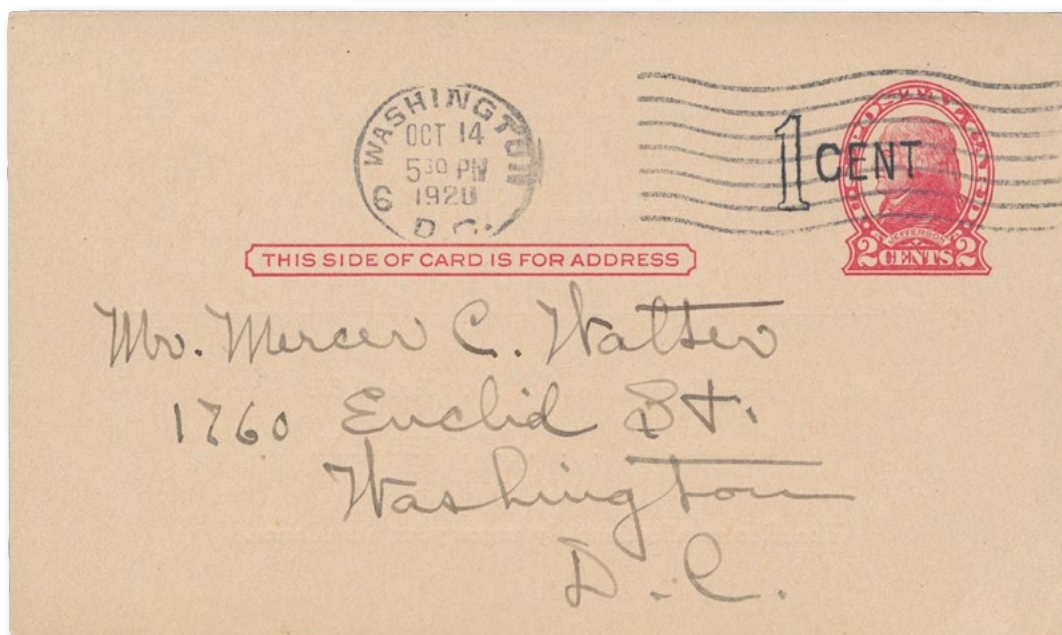 WASHINGTON
OCT 14
5 30 PM
1920
6
D.C.
1 CENT
U.S. POSTAL CARD
JEFFERSON
2 CENTS 2
THIS SIDE OF CARD IS FOR ADDRESS
Mr. Mercer C. Walter
1760 Euclid St.
Washington
D. C.